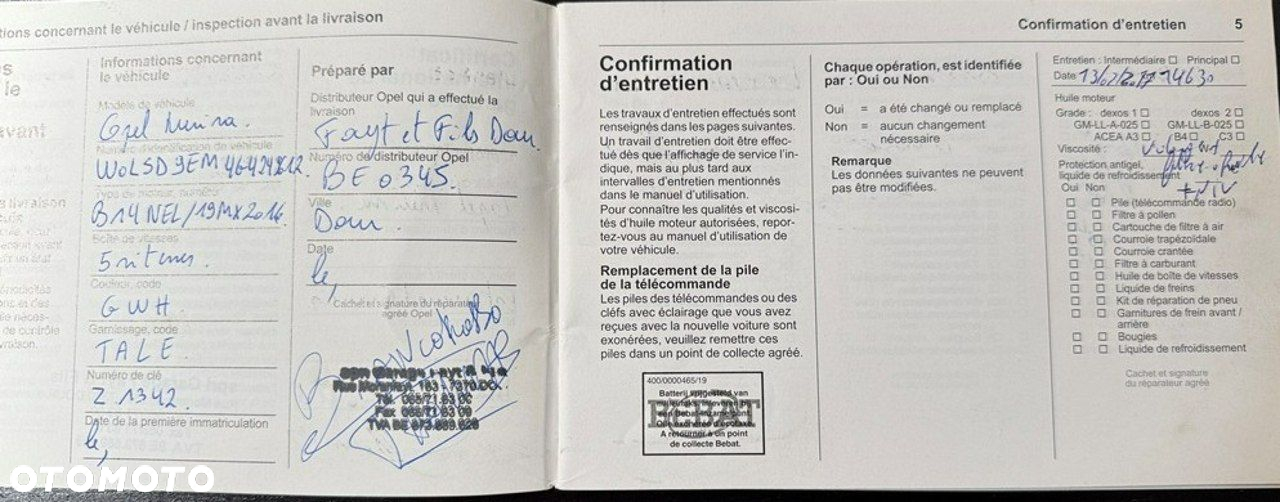 tions concernant le véhicule / inspection avant la livraison
Informations concernant
le véhicule
Modèle de véhicule
Opel
Numéro d'identification de véhicule
W0LSD9EM
Type de moteur, numéro
B14NEL/19MX2016
Boîte de vitesses
5 vitesses.
Couleur, code
GWH
Garnissage, code
TALE
Numéro de clé
Z 1342
Date de la première immatriculation
le,
Préparé par
Distributeur Opel qui a effectué la
livraison
Fayt et Fils Dour
Numéro de distributeur Opel
BE 0345.
Ville
Dour
Date
le,
Cachet et signature du réparateur
agréé Opel
Confirmation d'entretien 5
Confirmation
d'entretien
Les travaux d'entretien effectués sont
renseignés dans les pages suivantes.
Un travail d'entretien doit être effec-
tué dès que l'affichage de service l'in-
dique, mais au plus tard aux
intervalles d'entretien mentionnés
dans le manuel d'utilisation.
Pour connaître les qualités et viscosi-
tés d'huile moteur autorisées, repor-
tez-vous au manuel d'utilisation de
votre véhicule.
Remplacement de la pile
de la télécommande
Les piles des télécommandes ou des
clefs avec éclairage que vous avez
reçues avec la nouvelle voiture sont
exonérées, veuillez remettre ces
piles dans un point de collecte agréé.
400/0000465/19
BEBAT
A retourner à un point
de collecte Bebat.
Chaque opération, est identifiée
par : Oui ou Non
Oui = a été changé ou remplacé
Non = aucun changement
nécessaire
Remarque
Les données suivantes ne peuvent
pas être modifiées.
Entretien : Intermédiaire ☐ Principal ☐
Date 14630
Huile moteur
Grade : dexos 1 ☐ dexos 2 ☐
GM-LL-A-025 ☐ GM-LL-B-025 ☐
ACEA A3 ☐ B4 ☐ C3 ☐
Viscosité :
Protection antigel,
liquide de refroidissement
Oui Non
☐ ☐ Pile (télécommande radio)
☐ ☐ Filtre à pollen
☐ ☐ Cartouche de filtre à air
☐ ☐ Courroie trapézoïdale
☐ ☐ Courroie crantée
☐ ☐ Filtre à carburant
☐ ☐ Huile de boîte de vitesses
☐ ☐ Liquide de freins
☐ ☐ Kit de réparation de pneu
☐ ☐ Garnitures de frein avant /
arrière
☐ ☐ Bougies
☐ ☐ Liquide de refroidissement
Cachet et signature
du réparateur agréé
OTOMOTO